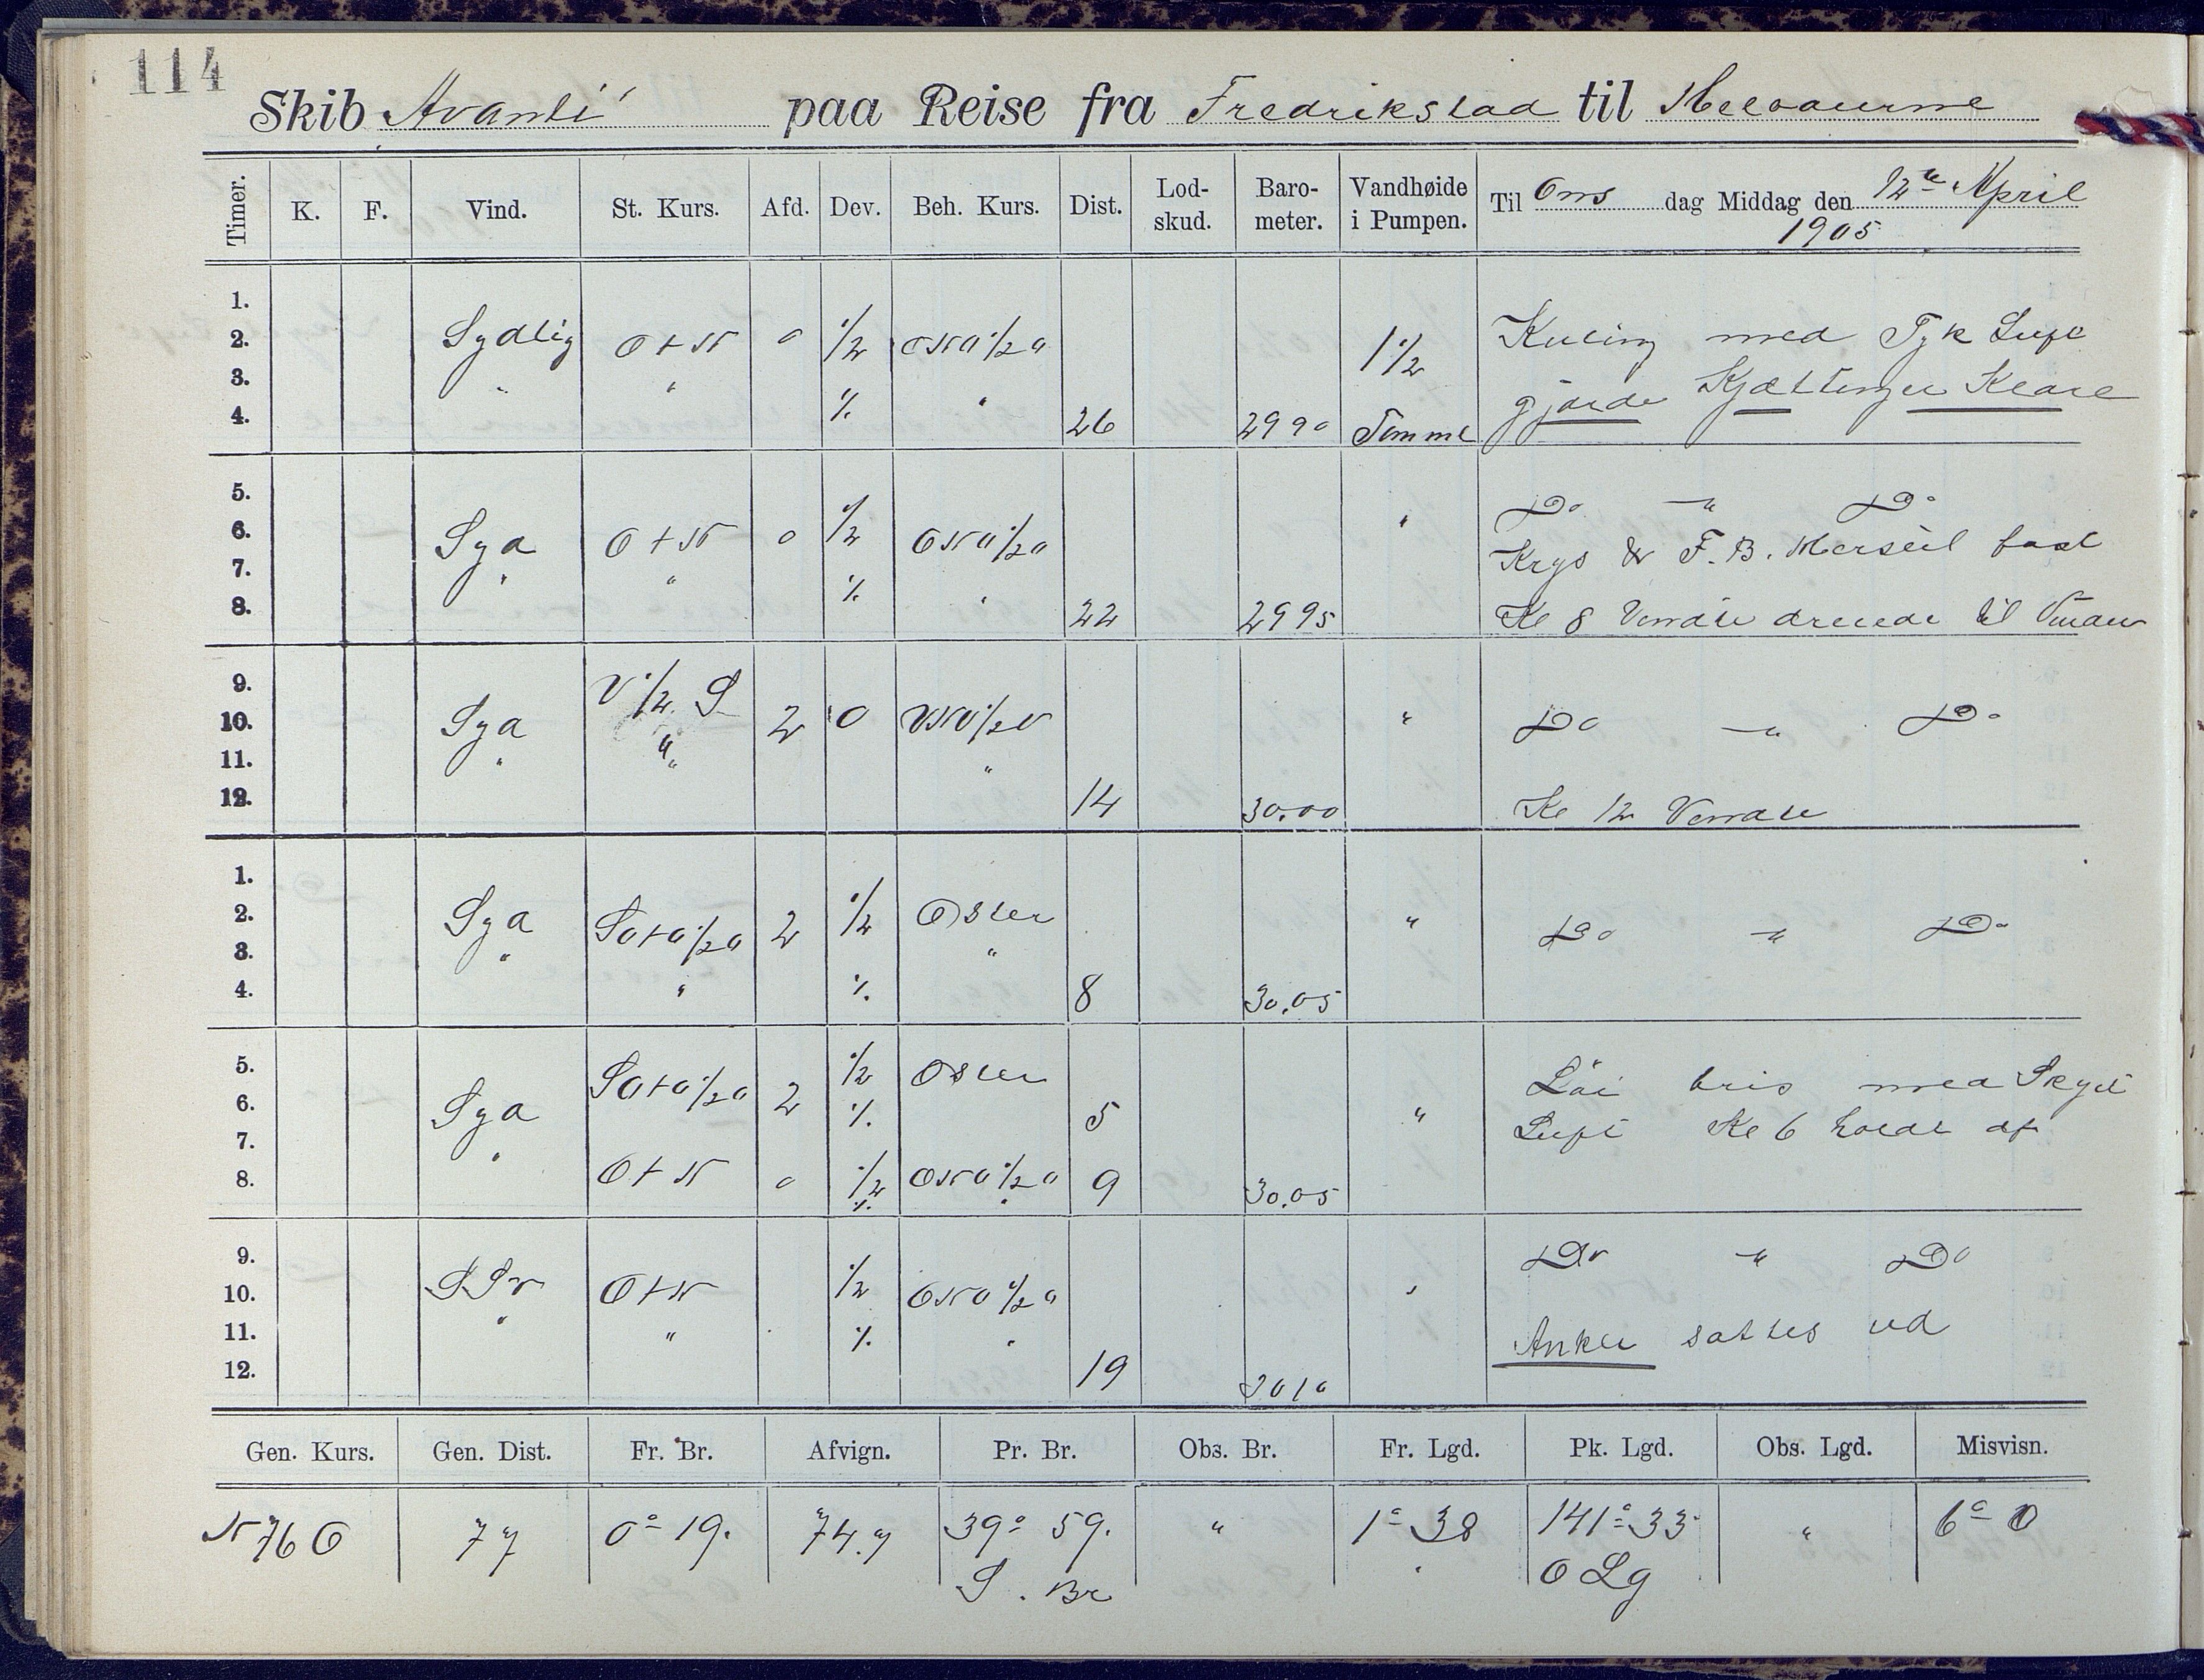 114
Skib Avanti paa Reise fra Fredrikstad til Melbourne
Timer. K. F. Vind. St. Kurs. Afd. Dev. Beh. Kurs. Dist. Lod-skud. Baro-meter. Vandhøide i Pumpen. Til Ons dag Middag den 12te April 1905
1.
2. Sydlig O t N 0 1/2 ONO 1/2 O 1 1/2 Kuling med Tyk Luft
3. " " " gjorde Kjættinger Klare
4. % 26 2990 Tomme
5. Do " Do
6. Syd O t N 0 1/2 ONO 1/2 O " Krys & F. B. Merseil fast
7. " " % "
8. 22 2995 Kl 8 Vendte dreiede til Vinden
9. V 1/2 S
10. Syd " 2 0 VNV 1/2 V " Do " Do
11. " " "
12. 14 30.00 Kl 12 Vendte
1.
2. Syd SO t O 1/2 O 2 1/2 Oster " Do " Do
3. " "
4. " % 8 30.05
5. SO t O 1/2 O 1/2 Oster Löi bris med Skyet
6. Syd 2 % 5 " Luft Kl 6 holdt af
7. "
8. O t N 0 1/2 ONO 1/2 O 9 30.05
% "
9. Do " Do
10. SSV O t N 1/2 ONO 1/2 O "
11. " " % " Anker sattes ud
12. 19 3010
Gen. Kurs. Gen. Dist. Fr. Br. Afvign. Pr. Br. Obs. Br. Fr. Lgd. Pk. Lgd. Obs. Lgd. Misvisn.
N 76 O 77 0° 19. 74.7 39° 59. " 1° 38 141° 33 " 6° O
S. Br O Lg